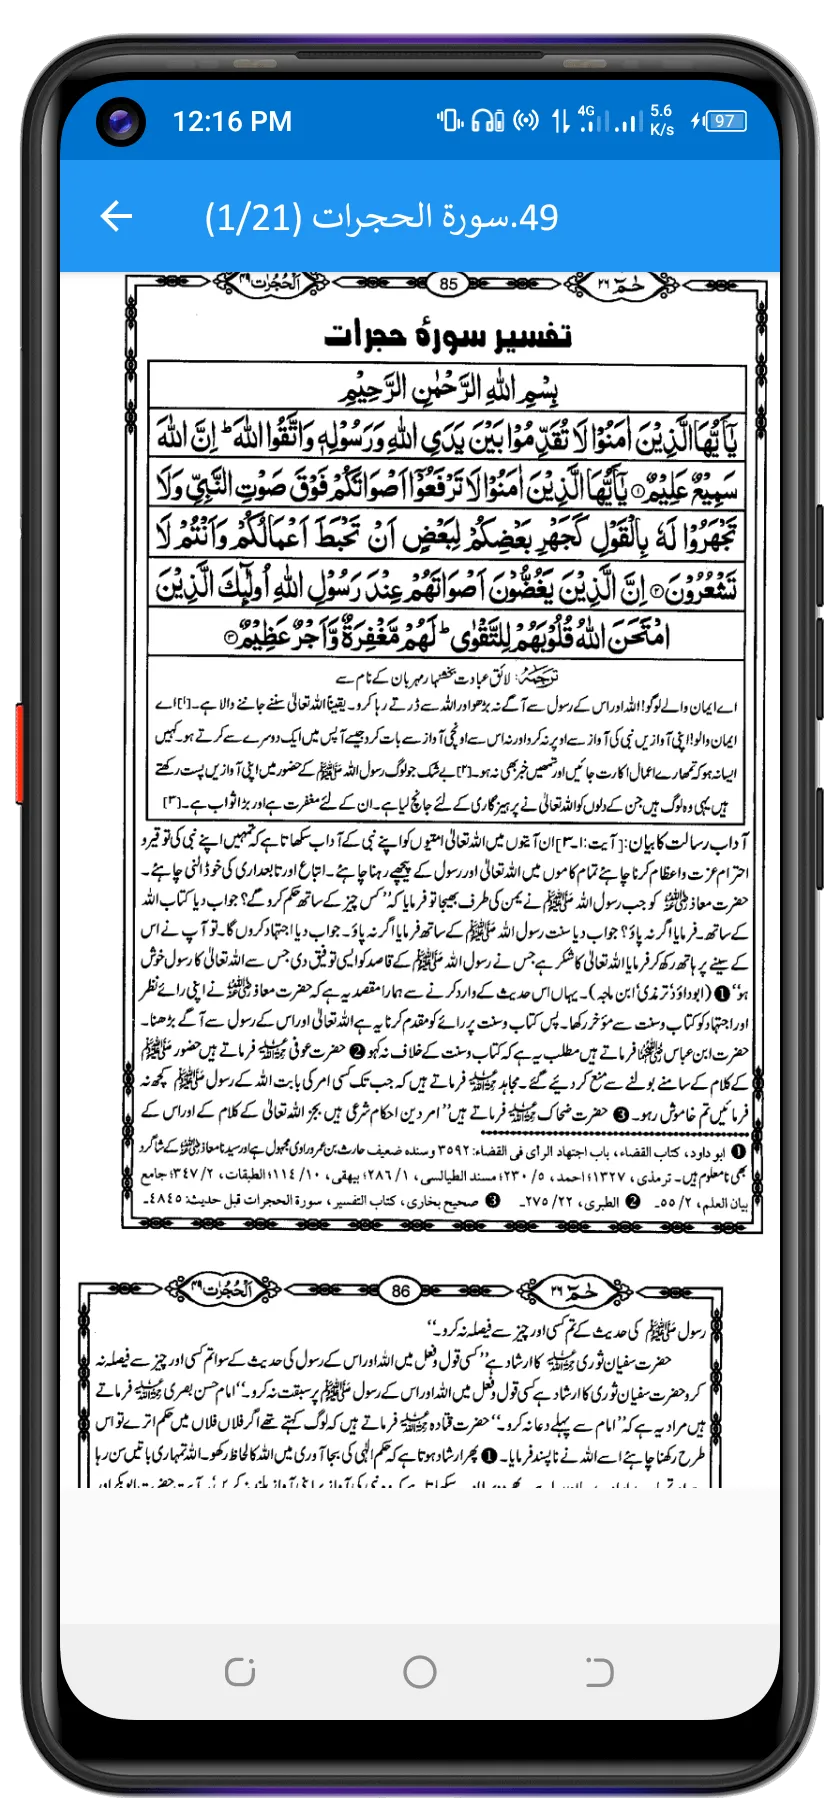 12:16 PM
4G
5.6
K/s
97
49.سورة الحجرات (1/21)
حٰمٓ ۲۶
85
اَلْحُجُرٰت ۴۹
تفسیر سورۂ حجرات
بِسْمِ اللهِ الرَّحْمٰنِ الرَّحِيْمِ
يٰٓاَيُّهَا الَّذِيْنَ اٰمَنُوْا لَا تُقَدِّمُوْا بَيْنَ يَدَيِ اللهِ وَرَسُوْلِهٖ وَاتَّقُوا اللهَ ؕ اِنَّ اللهَ
سَمِيْعٌ عَلِيْمٌ ۝۱ يٰٓاَيُّهَا الَّذِيْنَ اٰمَنُوْا لَا تَرْفَعُوْٓا اَصْوَاتَكُمْ فَوْقَ صَوْتِ النَّبِيِّ وَلَا
تَجْهَرُوْا لَهٗ بِالْقَوْلِ كَجَهْرِ بَعْضِكُمْ لِبَعْضٍ اَنْ تَحْبَطَ اَعْمَالُكُمْ وَاَنْتُمْ لَا
تَشْعُرُوْنَ ۝۲ اِنَّ الَّذِيْنَ يَغُضُّوْنَ اَصْوَاتَهُمْ عِنْدَ رَسُوْلِ اللهِ اُولٰٓئِكَ الَّذِيْنَ
امْتَحَنَ اللهُ قُلُوْبَهُمْ لِلتَّقْوٰى ؕ لَهُمْ مَّغْفِرَةٌ وَّاَجْرٌ عَظِيْمٌ ۝۳
ترجمہ: لائق عبادت بخشنہار مہربان کے نام سے
اے ایمان والے لوگو! اللہ اور اس کے رسول سے آگے نہ بڑھو اور اللہ سے ڈرتے رہا کرو۔ یقیناً اللہ تعالیٰ سننے جاننے والا ہے۔[۱] اے
ایمان والو! اپنی آوازیں نبی کی آواز سے اوپر نہ کرو اور نہ اس سے اونچی آواز سے بات کرو جیسے آپس میں ایک دوسرے سے کرتے ہو۔ کہیں
ایسا نہ ہو کہ تمھارے اعمال اکارت جائیں اور تمھیں خبر بھی نہ ہو۔[۲] بے شک جو لوگ رسول اللہ ﷺ کے حضور میں اپنی آوازیں پست رکھتے
ہیں یہی وہ لوگ ہیں جن کے دلوں کو اللہ تعالیٰ نے پرہیزگاری کے لئے جانچ لیا ہے۔ ان کے لئے مغفرت ہے اور بڑا ثواب ہے۔[۳]
آداب رسالت کا بیان: [آیت:۱۔۳] ان آیتوں میں اللہ تعالیٰ امتیوں کو اپنے نبی کے آداب سکھاتا ہے کہ تمہیں اپنے نبی کی توقیر و
احترام عزت و اعظام کرنا چاہئے تمام کاموں میں اللہ تعالیٰ اور رسول کے پیچھے رہنا چاہئے۔ اتباع اور تابعداری کی خو ڈالنی چاہئے۔
حضرت معاذ رضی اللہ عنہ کو جب رسول اللہ ﷺ نے یمن کی طرف بھیجا تو فرمایا کہ ’’کس چیز کے ساتھ حکم کرو گے؟ جواب دیا کتاب اللہ
کے ساتھ۔ فرمایا اگر نہ پاؤ؟ جواب دیا سنت رسول اللہ ﷺ کے ساتھ فرمایا اگر نہ پاؤ۔ جواب دیا اجتہاد کروں گا۔ تو آپ نے اس
کے سینے پر ہاتھ رکھ کر فرمایا اللہ تعالیٰ کا شکر ہے جس نے رسول اللہ ﷺ کے قاصد کو ایسی توفیق دی جس سے اللہ تعالیٰ کا رسول خوش
ہو‘‘ ❶ (ابوداؤد' ترمذی' ابن ماجہ)۔ یہاں اس حدیث کے وارد کرنے سے ہمارا مقصد یہ ہے کہ حضرت معاذ رضی اللہ عنہ نے اپنی رائے نظر
اور اجتہاد کو کتاب و سنت سے مؤخر رکھا۔ پس کتاب و سنت پر رائے کو مقدم کرنا یہ ہے اللہ تعالیٰ اور اس کے رسول سے آگے بڑھنا۔
حضرت ابن عباس رضی اللہ عنہما فرماتے ہیں مطلب یہ ہے کہ کتاب و سنت کے خلاف نہ کہو ❷ حضرت عوفی رحمۃ اللہ علیہ فرماتے ہیں حضور ﷺ
کے کلام کے سامنے بولنے سے منع کر دیئے گئے۔ مجاہد رحمۃ اللہ علیہ فرماتے ہیں کہ جب تک کسی امر کی بابت اللہ کے رسول ﷺ کچھ نہ
فرمائیں تم خاموش رہو۔ ❸ حضرت ضحاک رحمۃ اللہ علیہ فرماتے ہیں ’’امر دین احکام شرعی میں بجز اللہ تعالیٰ کے کلام کے اور اس کے
❶ ابو داود، کتاب القضاء، باب اجتهاد الرأی فی القضاء: ۳۵۹۲ وسندہ ضعیف حارث بن عمرو راوی مجہول ہے اور سیدنا معاذ رضی اللہ عنہ کے شاگرد
بھی نامعلوم ہیں۔ ترمذی، ۱۳۲۷؛ احمد، ۵/ ۲۳۰؛ مسند الطیالسی، ۱/ ۲۸۶؛ بیهقی، ۱۰/ ۱۱۴؛ الطبقات، ۲/ ۳۴۷؛ جامع
بیان العلم، ۲/ ۵۵۔ ❷ الطبری، ۲۲/ ۲۷۵۔ ❸ صحیح بخاری، کتاب التفسیر، سورة الحجرات قبل حدیث: ۴۸۴۵۔
حٰمٓ ۲۶
86
اَلْحُجُرٰت ۴۹
رسول ﷺ کی حدیث کے تم کسی اور چیز سے فیصلہ نہ کرو۔‘‘
حضرت سفیان ثوری رحمۃ اللہ علیہ کا ارشاد ہے ’’کسی قول و فعل میں اللہ اور اس کے رسول کی حدیث کے سوا تم کسی اور چیز سے فیصلہ نہ
کرو حضرت سفیان ثوری کا ارشاد ہے کسی قول و فعل میں اللہ اور اس کے رسول ﷺ پر سبقت نہ کرو۔‘‘ امام حسن بصری رحمۃ اللہ علیہ فرماتے
ہیں مراد یہ ہے کہ ’’امام سے پہلے دعا نہ کرو۔‘‘ حضرت قتادہ رحمۃ اللہ علیہ فرماتے ہیں کہ لوگ کہتے تھے اگر فلاں فلاں میں حکم اترے تو اس
طرح رکھنا چاہئے اسے اللہ نے ناپسند فرمایا۔ ❶ پھر ارشاد ہوتا ہے کہ حکم الٰہی کی بجا آوری میں اللہ کا لحاظ رکھو۔ اللہ تمہاری باتیں سن رہا